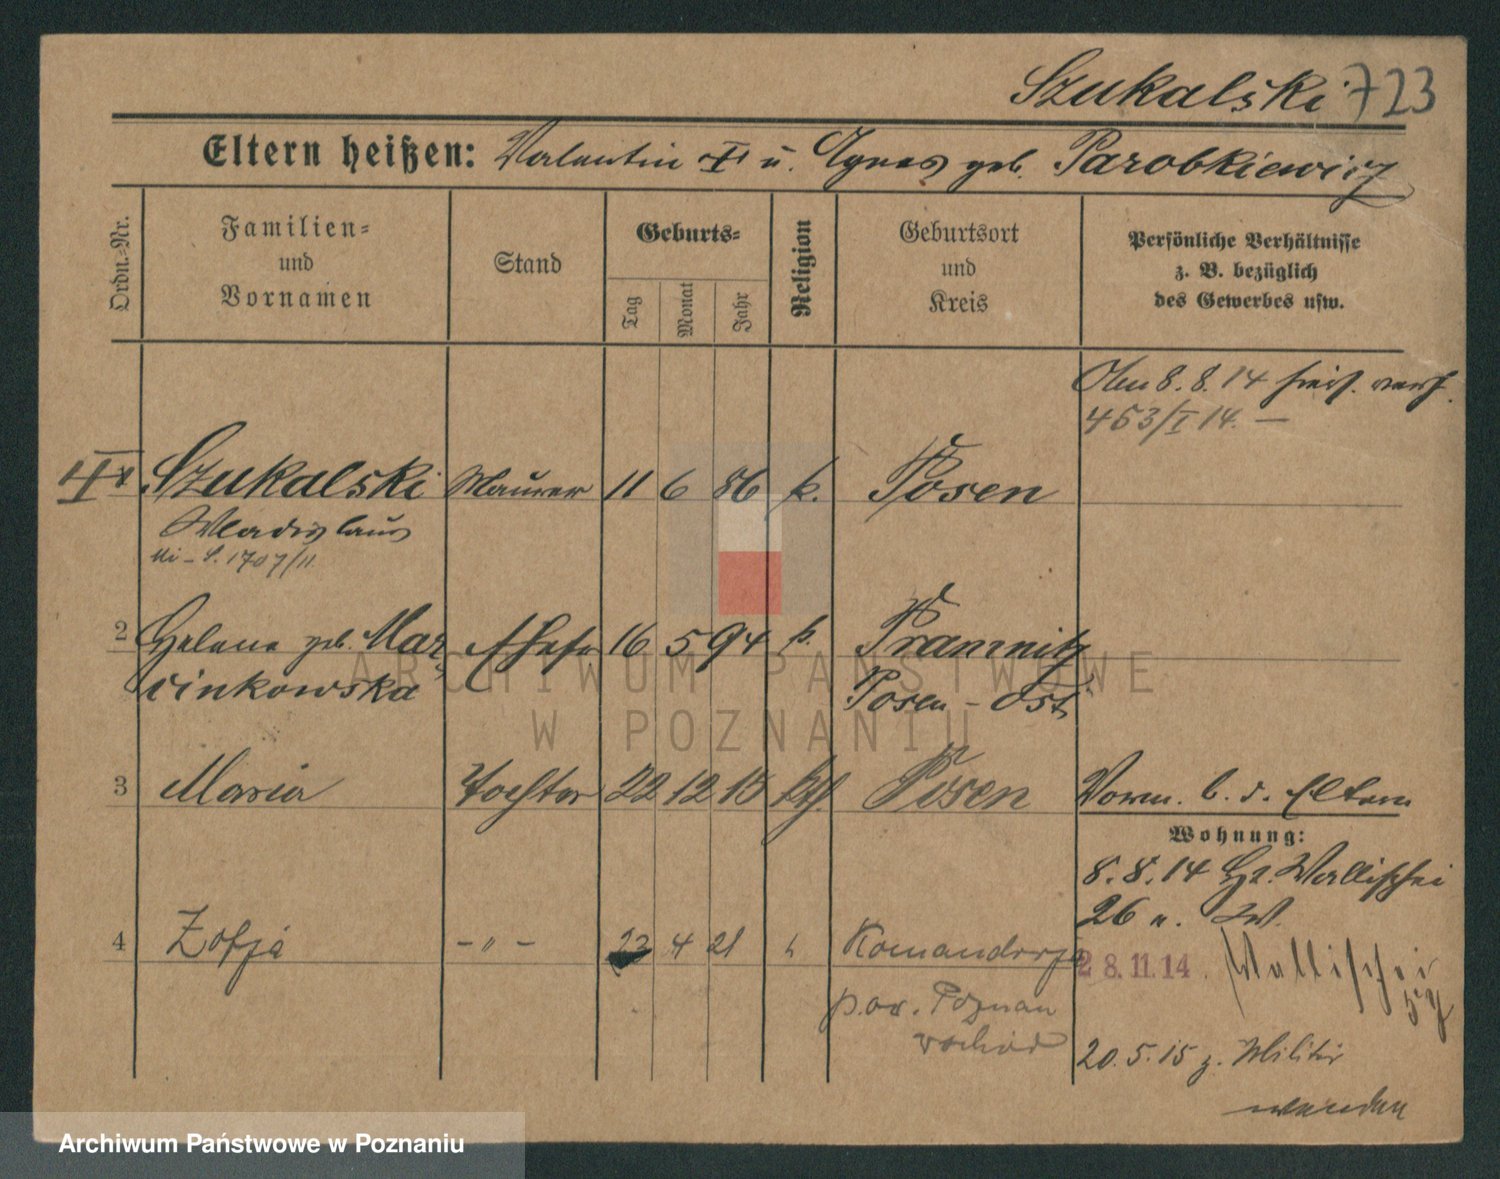 Szukalski 723
Eltern heißen: Valentin u. Agnes geb. Parobkiewicz
Ordn.-Nr.
Familien-
und
Vornamen
Stand
Geburts-
Tag
Monat
Jahr
Religion
Geburtsort
und
Kreis
Persönliche Verhältnisse
z. B. bezüglich
des Gewerbes usw.
8. 8. 14
463/I 14. —
Szukalski Maurer 11 6 86 k. Posen
Wladislaus
1707/11
2 Helene geb. Mar- Ehefr 16 5 94 k.
cinkowska Posen - Ost
3 Maria Tochter 22 12 13 kth. Posen
Vorm. b. d. Eltern
Wohnung:
8. 8. 14 Wallischei
26
4 Zofja - „ - 22 4 21 Komandorja
28.11.14. Wallischei
pow. Poznan
wschód
20. 5. 15 z. Militär
wenden
ARCHIWUM PAŃSTWOWE
W POZNANIU
Archiwum Państwowe w Poznaniu